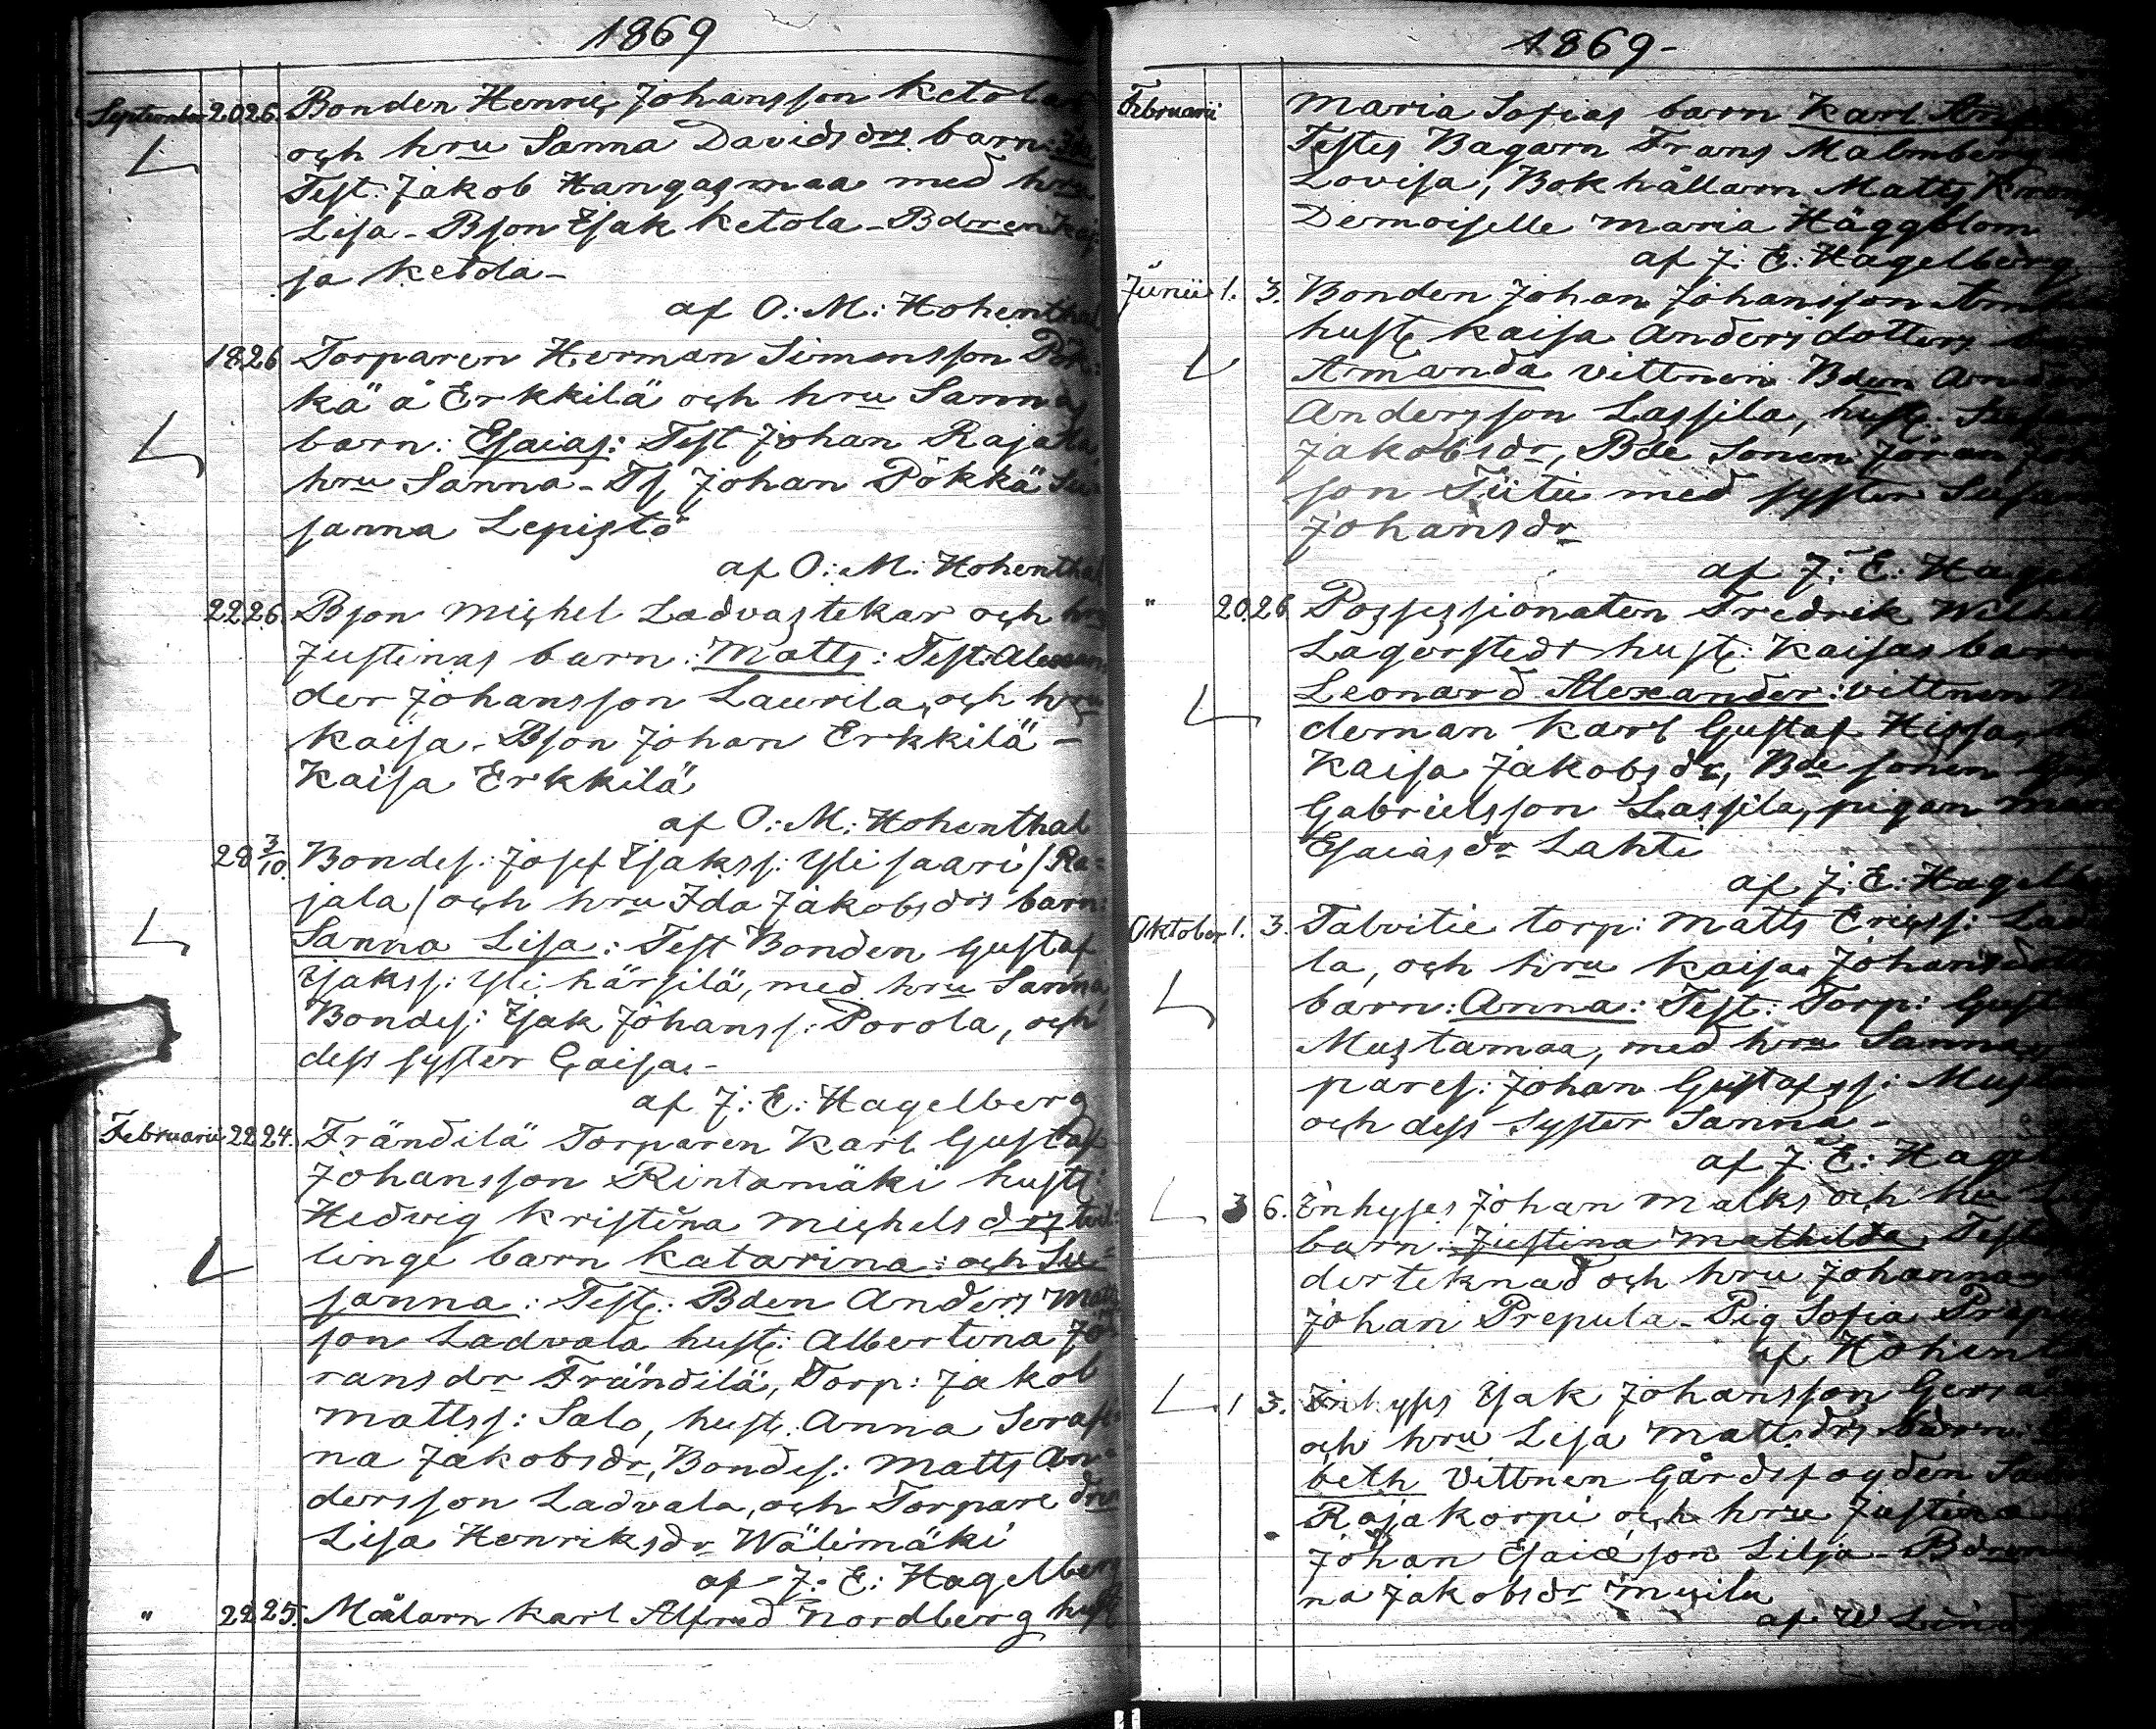 1869
September 20. 26. Bonden Henric Johansson Ketolas
och hru Sanna Davidsdrs barn:
Test: Jakob Hangasmaa med hru
Lisa - Bson Isak Ketola - Bdren Kaj-
sa Ketola -
af O: M: Hohenthal
18. 26 Torparen Herman Simonsson Pök-
kä å Erkkilä och hru Sannas
barn: Esaias: Test Johan Rajala,
hru Sanna - Ts Johan Pökkä Su-
sanna Lepistö
af O: M: Hohenthal
22. 26. Bson Michel Ladvastekar och hru
Justinas barn: Matts: Test: Alexan-
der Johansson Laurila, och hru
Kaisa - Bson Johan Erkkilä -
Kaisa Erkkilä
af O: M: Hohenthal
28 3/10. Bondes: Josef Isakss: Ylisaari / Ra=
jala / och hru Ida Jakobsdrs barn:
Sanna Lisa: Test Bonden Gustaf
Isakss: Yli härsilä, med hru Sanna
Bondes: Isak Johanss: Porola, och
dess syster Caisa. -
af J: E: Hagelberg
Februarii 22 24. Frändilä Torparen Karl Gustaf
Johansson Rintamäki hust:
Hedvig Kristina Michelsdrs tvil-
linge barn Katarina: och Su=
sanna: Test: Bden Anders Matts
son Ladvala hust: Albertina Jö
ransdr Frändilä, Torp: Jakob
Mattss: Salo, hust: Anna Serafi
na Jakobsdr, Bondes: Matts An=
dersson Ladvala, och Torpare drn
Lisa Henriksdr Wälimäki
af J: E: Hagelberg
" 22 25. Målarn Karl Alfred Nordberg hust
1869-
Februarii Maria Sofias barn Karl
Testes Bagarn Frans Malmberg
Lovisa, Bokhållarn Matts
Demoiselle Maria Häggblom
af J: E: Hagelberg
Junii 1. 3. Bonden Johan Johansson
hust: Kaisa Andersdotters
Armanda vittnen Bden
Andersson Lassila, hust:
Jakobsdr, Bde Sonen Jöran
son Tiitu med syster
Johansdr
af J: E:
" 20. 26. Possessionaten Fredrik
Lagerstedt hust: Kaisas barn
Leonard Alexander: vittnen
deman Karl Gustaf Hissa,
Kaisa Jakobsdr, Bde sonen
Gabrielsson Lassila, pigan
Esaiasdr Lahti
af J: E:
Oktober 1. 3. Talvitie torp: Matts Ericss:
la, och hru Kaisa
barn: Anna: Test: Torp:
Mustamaa, med hru Sanna
pares: Johan Gustafss:
och dess Syster Sanna -
af J: E:
3 6. Inhyses Johan Malks och hu
barn: Justina Mathilda,
derteknad och hru Johanna
Johan Prepula - Pig Sofia
af
1 3. Inhyses Isak Johansson
och hru Lisa Mattsdrs barn:
beth Vittnen Gårdsfogden
Rajakorpi och hru Justina
Johan Esaiæson Lilja -
na Jakobsdr
af W